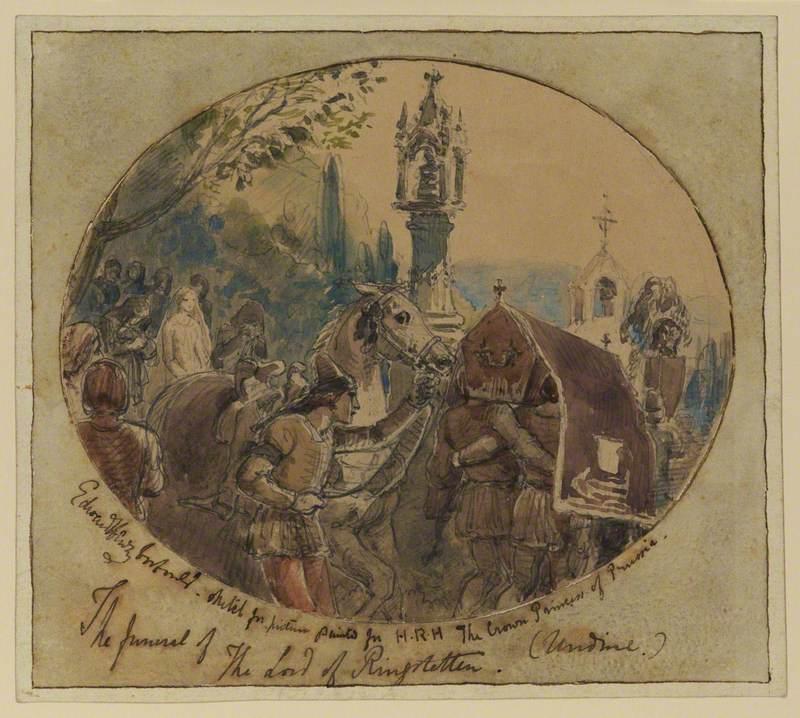 Edward Henry Corbould. sketch for picture painted for H.R.H The Crown Princess of Prussia.
The funeral of
The Lord of Ringstetten. (Undine.)